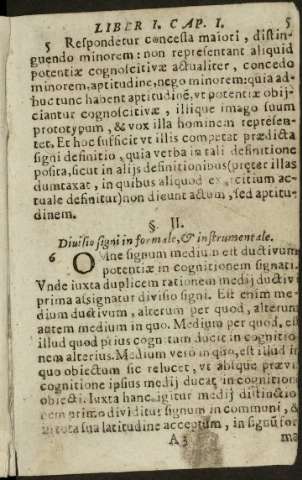 LIBER I. CAP. I. 5
5 Respondetur concessa maiori, distin-
guendo minorem: non representant aliquid
potentiæ cognoscitivæ actualiter, concedo
minorem, aptitudine, nego minorem: quia ad-
huc tunc habent aptitudinẽ, vt potentiæ obij-
ciantur cognoscitivæ, illique imago suum
prototypum, & vox illa hominem represen-
tet. Et hoc sufficit vt illis competat prædicta
signi definitio, quia verba in tali definitione
posita, sicut in alijs definitionibus (præter illas
dumtaxat, in quibus aliquod exercitium ac-
tuale definitur) non dicunt actum, sed aptitu-
dinem.
§. II.
Divisio signi in formale, & instrumentale.
6 Omne signum medium est ductivum
potentiæ in cognitionem signati.
Vnde iuxta duplicem rationem medij ductivi
prima assignatur divisio signi. Est enim me-
dium ductivum, alterum per quod, alterum
autem medium in quo. Medium per quod, est
illud quod prius cognitum ducit in cognitio
nem alterius. Medium vero in quo, est illud in
quo obiectum sic relucet, vt absque prævia
cognitione ipsius medij ducat in cognitionem
obiecti. Iuxta hanc igitur medij distinctio
nem primo dividitur signum in communi, &
in tota sua latitudine acceptum, in signũ for
A3 ma